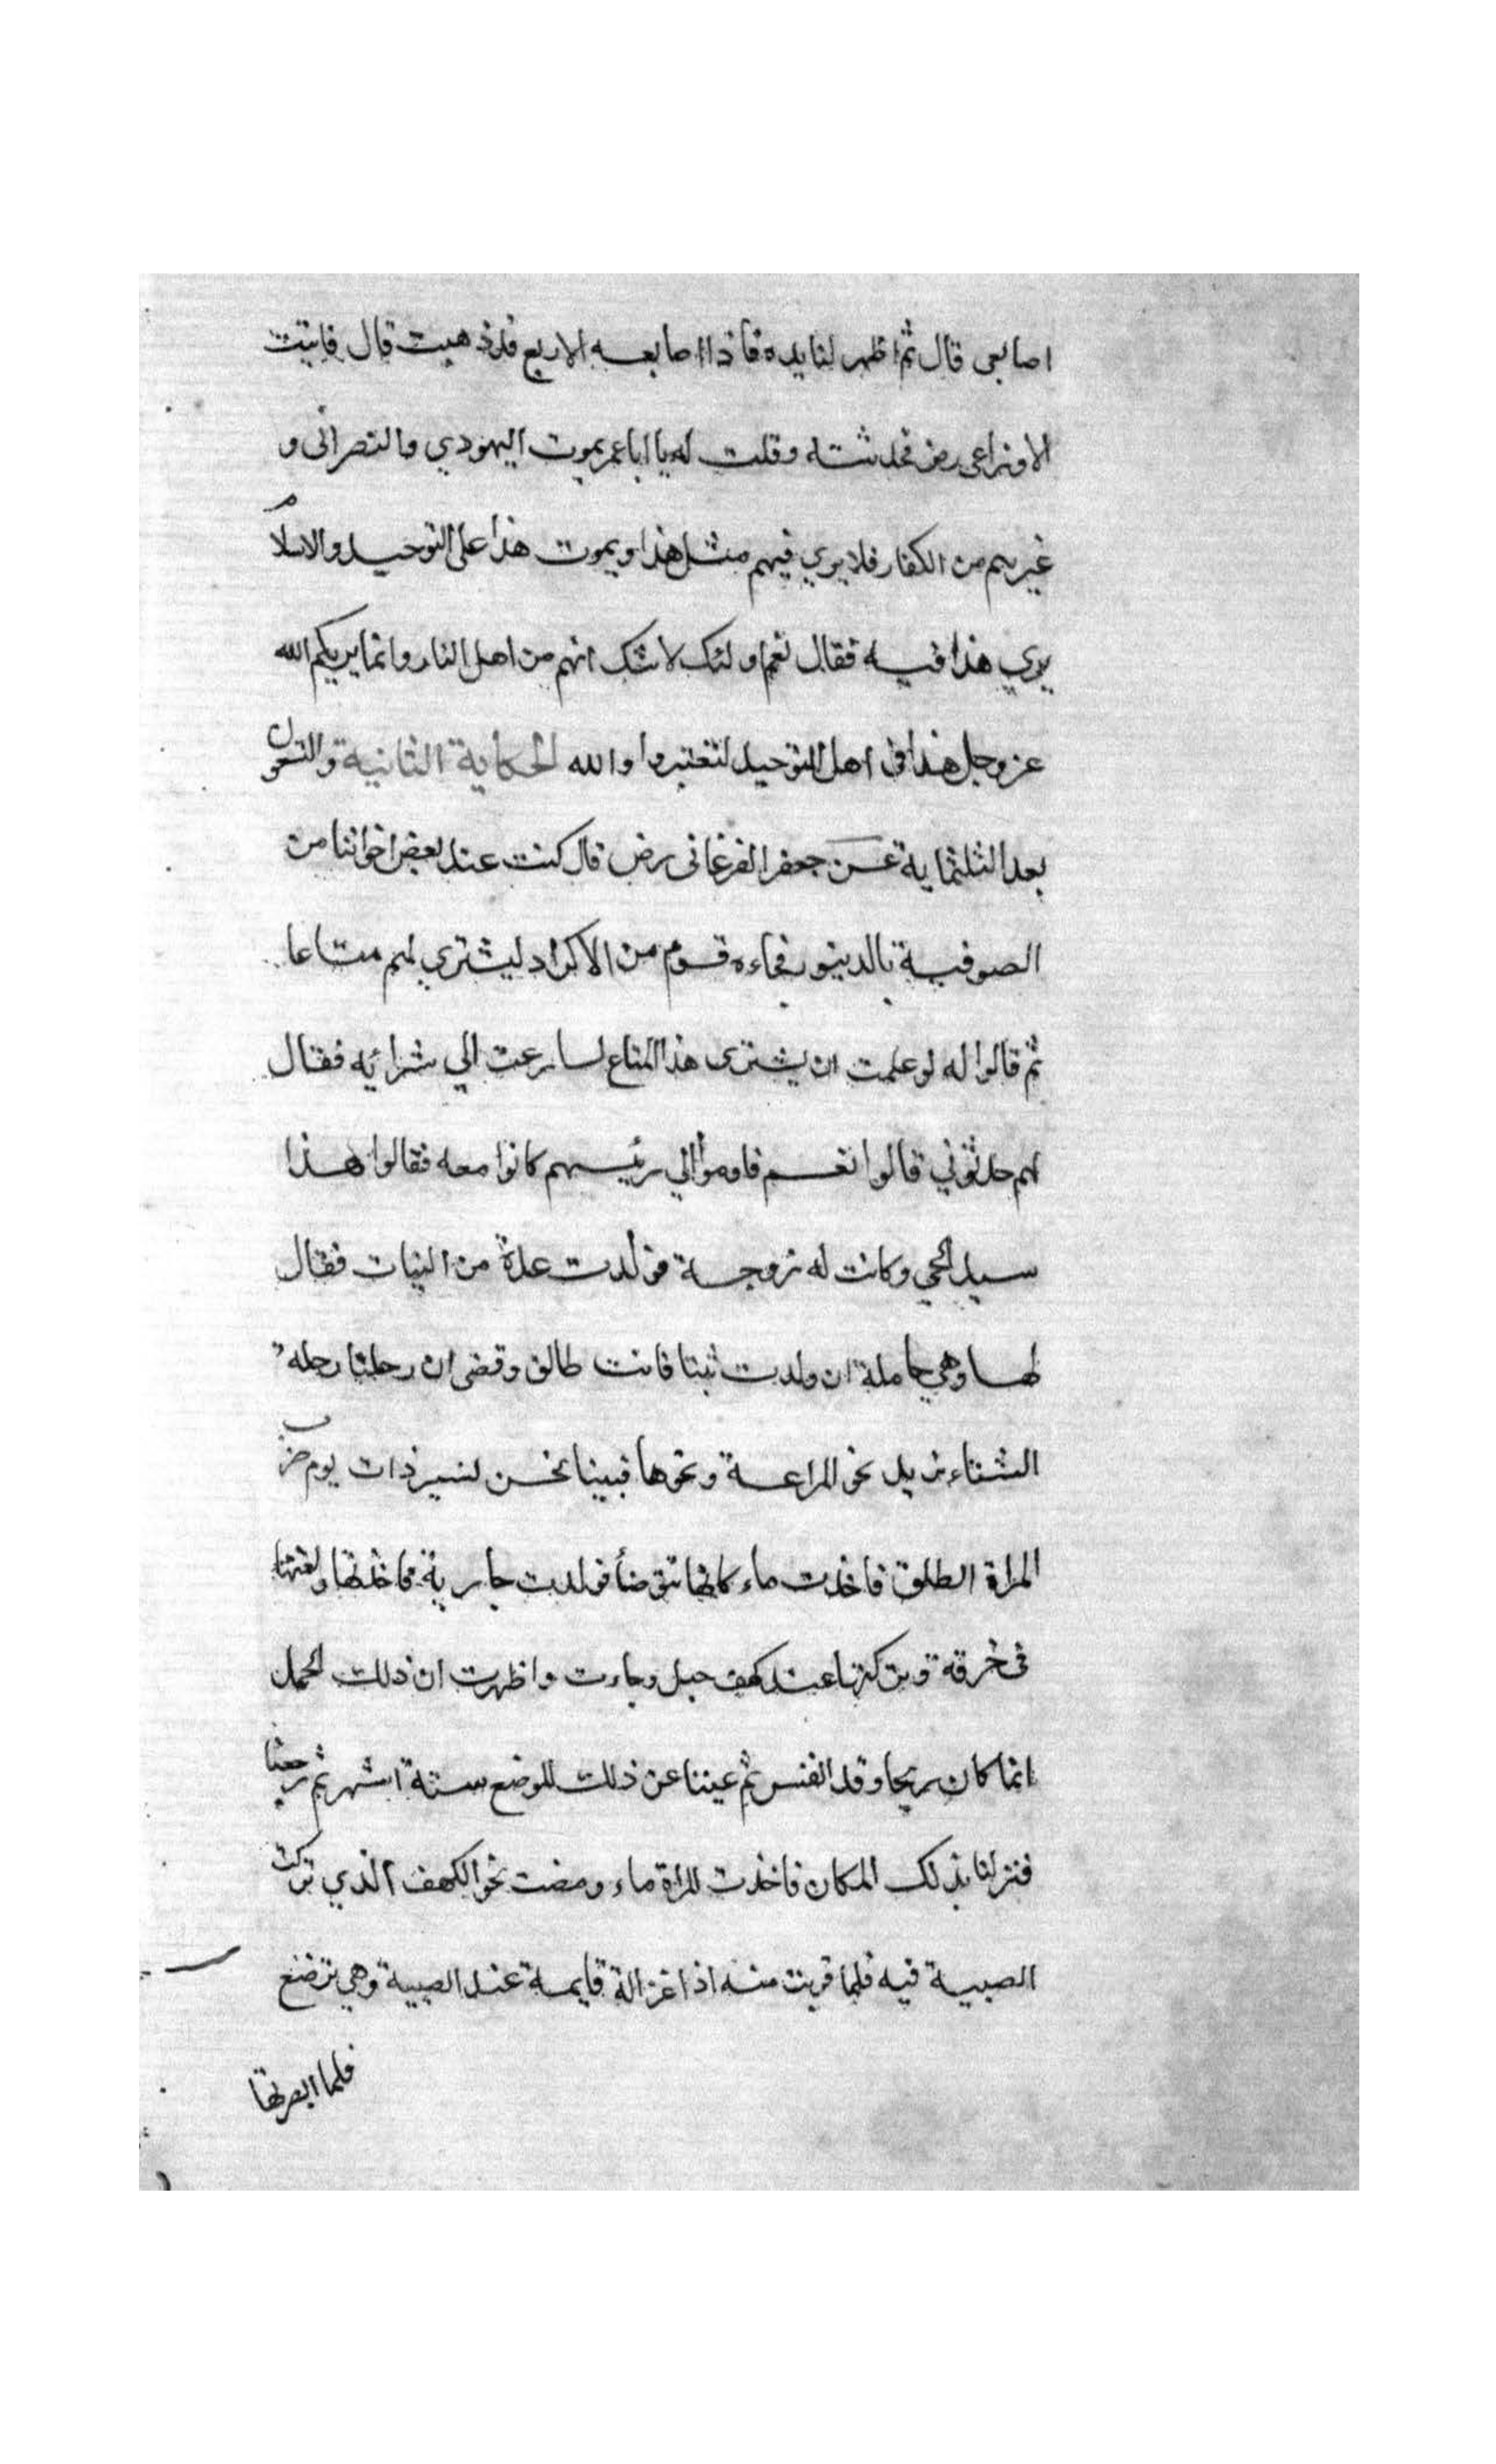 اصابعى قال ثم اظهر لنا يده فاذا اصابعه الاربع قد ذهبت قال فاتيت
الاوزاعى رض فحدثته وقلت له يا ابا عمر يموت اليهودي والنصرانى و
غيرهم من الكفار فلا يري فيهم مثل هذا ويموت هذا على التوحيد والاسلام
يري هذا فيه فقال نعم اولئك لا شك انهم من اهل النار وانما يريكم الله
عز وجل هذا فى اهل التوحيد لتعتبروا والله الحكاية الثانية والتسعون
بعد الثلثماية عن جعفر الفرغانى رض قال كنت عند بعض اخواننا من
الصوفية بالدينور فجاءه قوم من الاكراد ليشتري لهم متاعا
ثم قالوا له لو علمت ان يشترى هذا المتاع لسارعت الي شرائه فقال
لهم حدثوني قالوا نعم فاوموا الي رئيسهم كانوا معه فقالوا هذا
سيد الحي وكانت له زوجة فولدت عدة من البنات فقال
لها وهي حاملة ان ولدت بنتا فانت طالق وقضى ان رحلنا رحله
الشتاء نريد نحو المراعة ونحوها فبينا نحن نسير ذات يوم ضرب
المراة الطلق فاخذت ماء كانها تتوضأ فولدت جارية فاخذتها ولفتها
فى خرقة وتركتها عند كهف جبل وجاءت واظهرت ان ذلك الحمل
انما كان ريحا وقد انفس ثم غبنا عن ذلك الموضع ستة اشهر ثم رجعنا
فنزلنا بذلك المكان فاخذت المراة ماء ومضت نحو الكهف الذي تركت
الصبية فيه فلما قربت منه اذا غزالة قايمة عند الصبية وهي ترضع
فلما ابصرتها